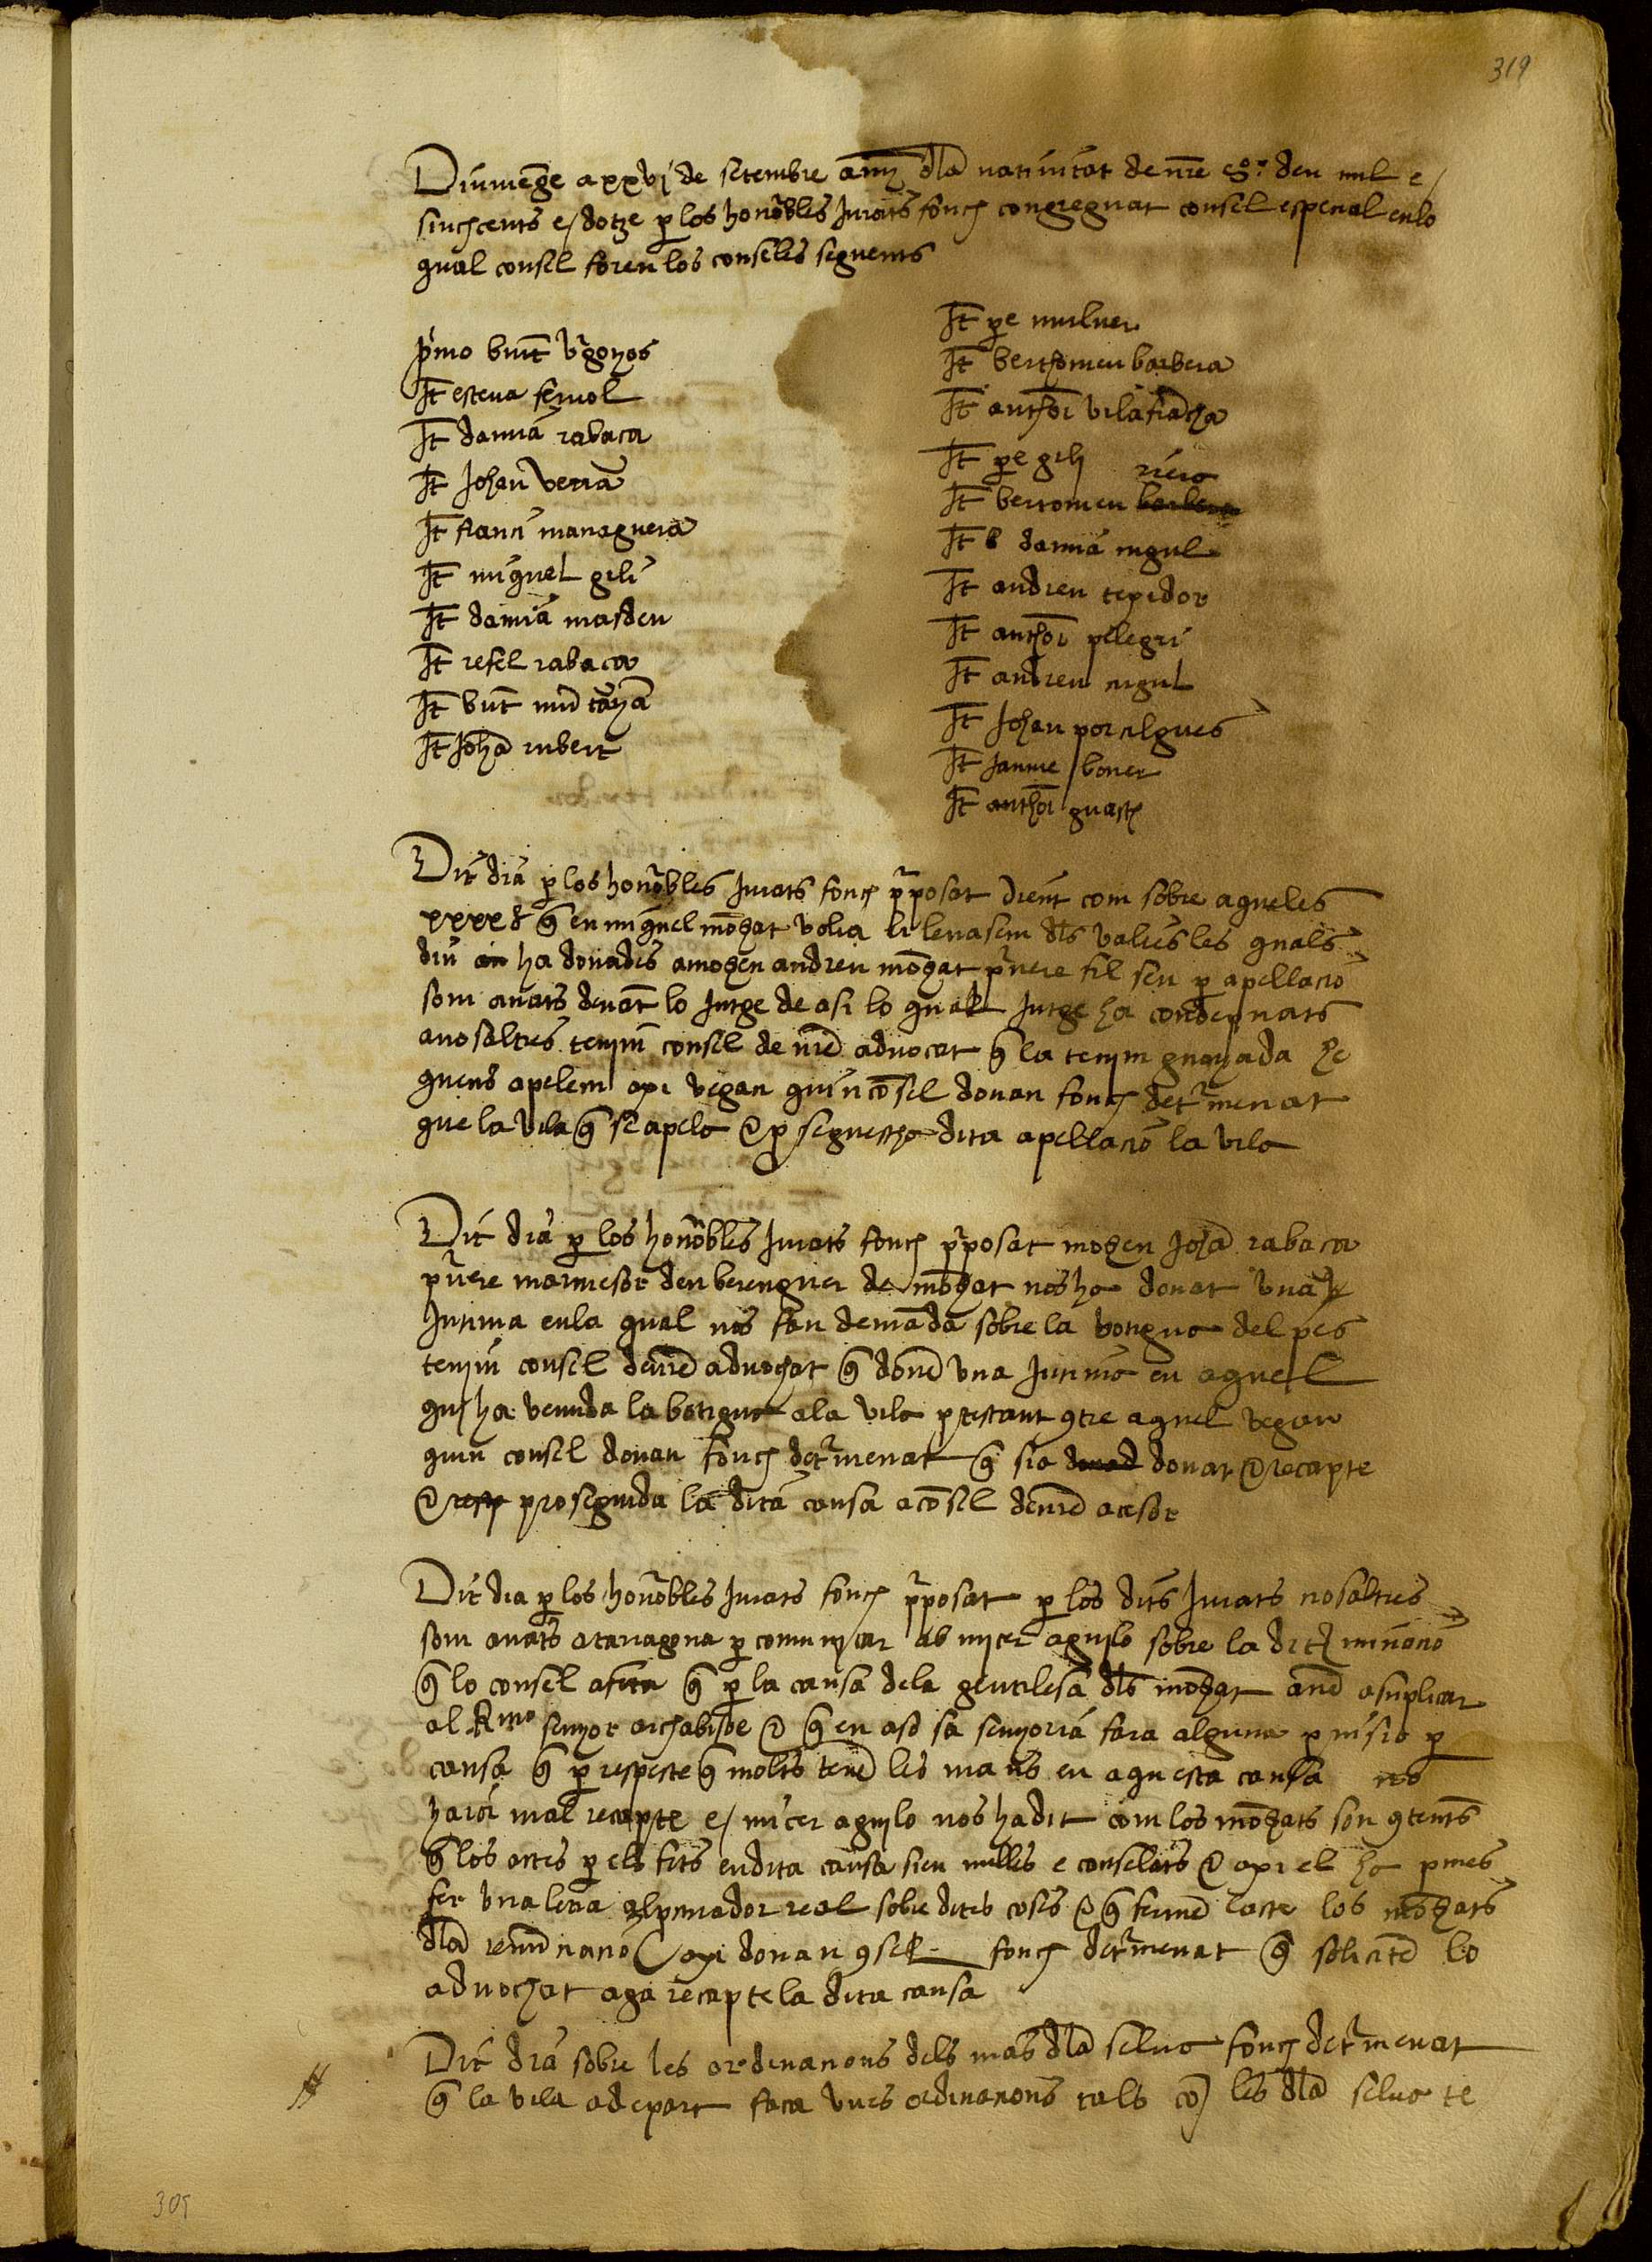 319
Diumēge a xxvj de setembre anny dla nativitat de nre Sr. deu mil e/
sinchcents e/ dotze p los honorbles Jurats fonch congreguat consel espesial en lo
qual consel foren los conseles seguents
prmo bnit vrgonyos
It esteva fermol
It damia rabaca
It Johan verra
It franci managuera
It miguel gili
It damia masdeu
It refel rabaca
It bnt
It Joha rubert
It pe muluer
It berthomeu barbera
It anthoi vilafracha
It pe gili
riera
It bertomeu barbera
It b damia nigul
It andreu texidor
It anthoi pelegri
It andreu nigul
It Johan porcilgues
It Jaume boner
It anthoi guasch
Dit dia p los honorbles Jurats fonch pposat dient com sobre aqueles
xxxx s q en miguel mōzat volia li levasem dls valies les quals
diu an ha donades a mosen andreu mōzat prvere fil seu p apellacio
som anats devāt lo Jutge de asi lo qual Jutge ha condepnats
a nosaltres tenim consel de nre advocat q la tenim guayada he
quens apelem axi vegan quin cosel donan fonch detrmenat
que la vila q se apela e p seguescha dita apellacio la vila
Dit dia p los honorbles Jurats fonch pposat mosen Joha rabaca
prvere marmesor den berenguer de mōzat nos ha donat una
Intima en la qual nos fan demāda sobre la botigua del pes
tenim consel de nre advochat q donē una Intima en aquell
qui ha venuda la botigua a la vila ptestant 9tre aquel vegan
quin consel donan fonch detrmenat q sia donat e recapte
e resp proseguida la dita causa a cosel de nre acesor
Dit dia p los honorbles Jurats fonch pposat p los dits Jurats nosaltres
som anats a tarragona p comunicar ab micer aguilo sobre la detrminacio
q lo consel a feta q p la causa de la gentilesa dls mōzat anē a suplicar
al Rmo senyor archabisbe e q en aso sa senyoria fara alguna pvisio p
causa q p respecte q molts tenē les mans en aquesta causa nos
haroi mal recapte e/ micer aguilo nos ha dit com los mōzats son 9tents
q los actes p els fets en dita causa sien nulles e conselats e axi el ha pmes
fer una letra al prcurador real sobre dites coses e q fermē carte los mōzats
dla renūciacio axi donan 9sel fonch detrmenat q solicitē lo
advochat aga recapte la dita causa
Dit dia sobre les ordinacions dels mas dla selva fonch detrmenat
q la vila adepart faca unes ordinacions tals co les dla selva te
309